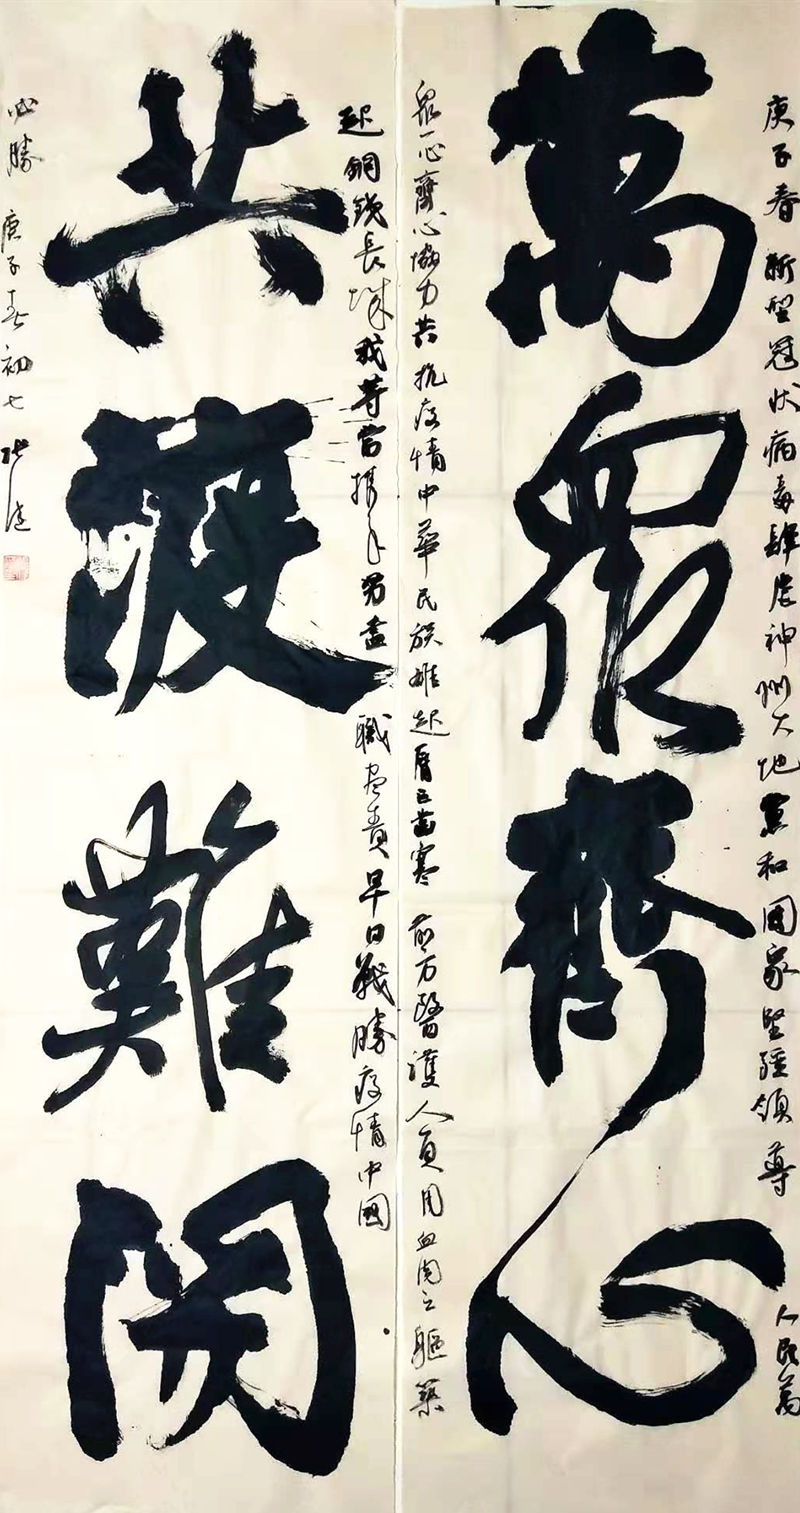 庚子春新型冠状病毒肆虐神州大地党和国家坚强领导人民萬
萬眾齊心
眾一心齊心協力共抗疫情中華民族雄起前方醫護人員用血肉之軀築
起銅錢長城我等當携手盡職盡責早日戰勝疫情中國
共渡難関
必勝庚子春初七